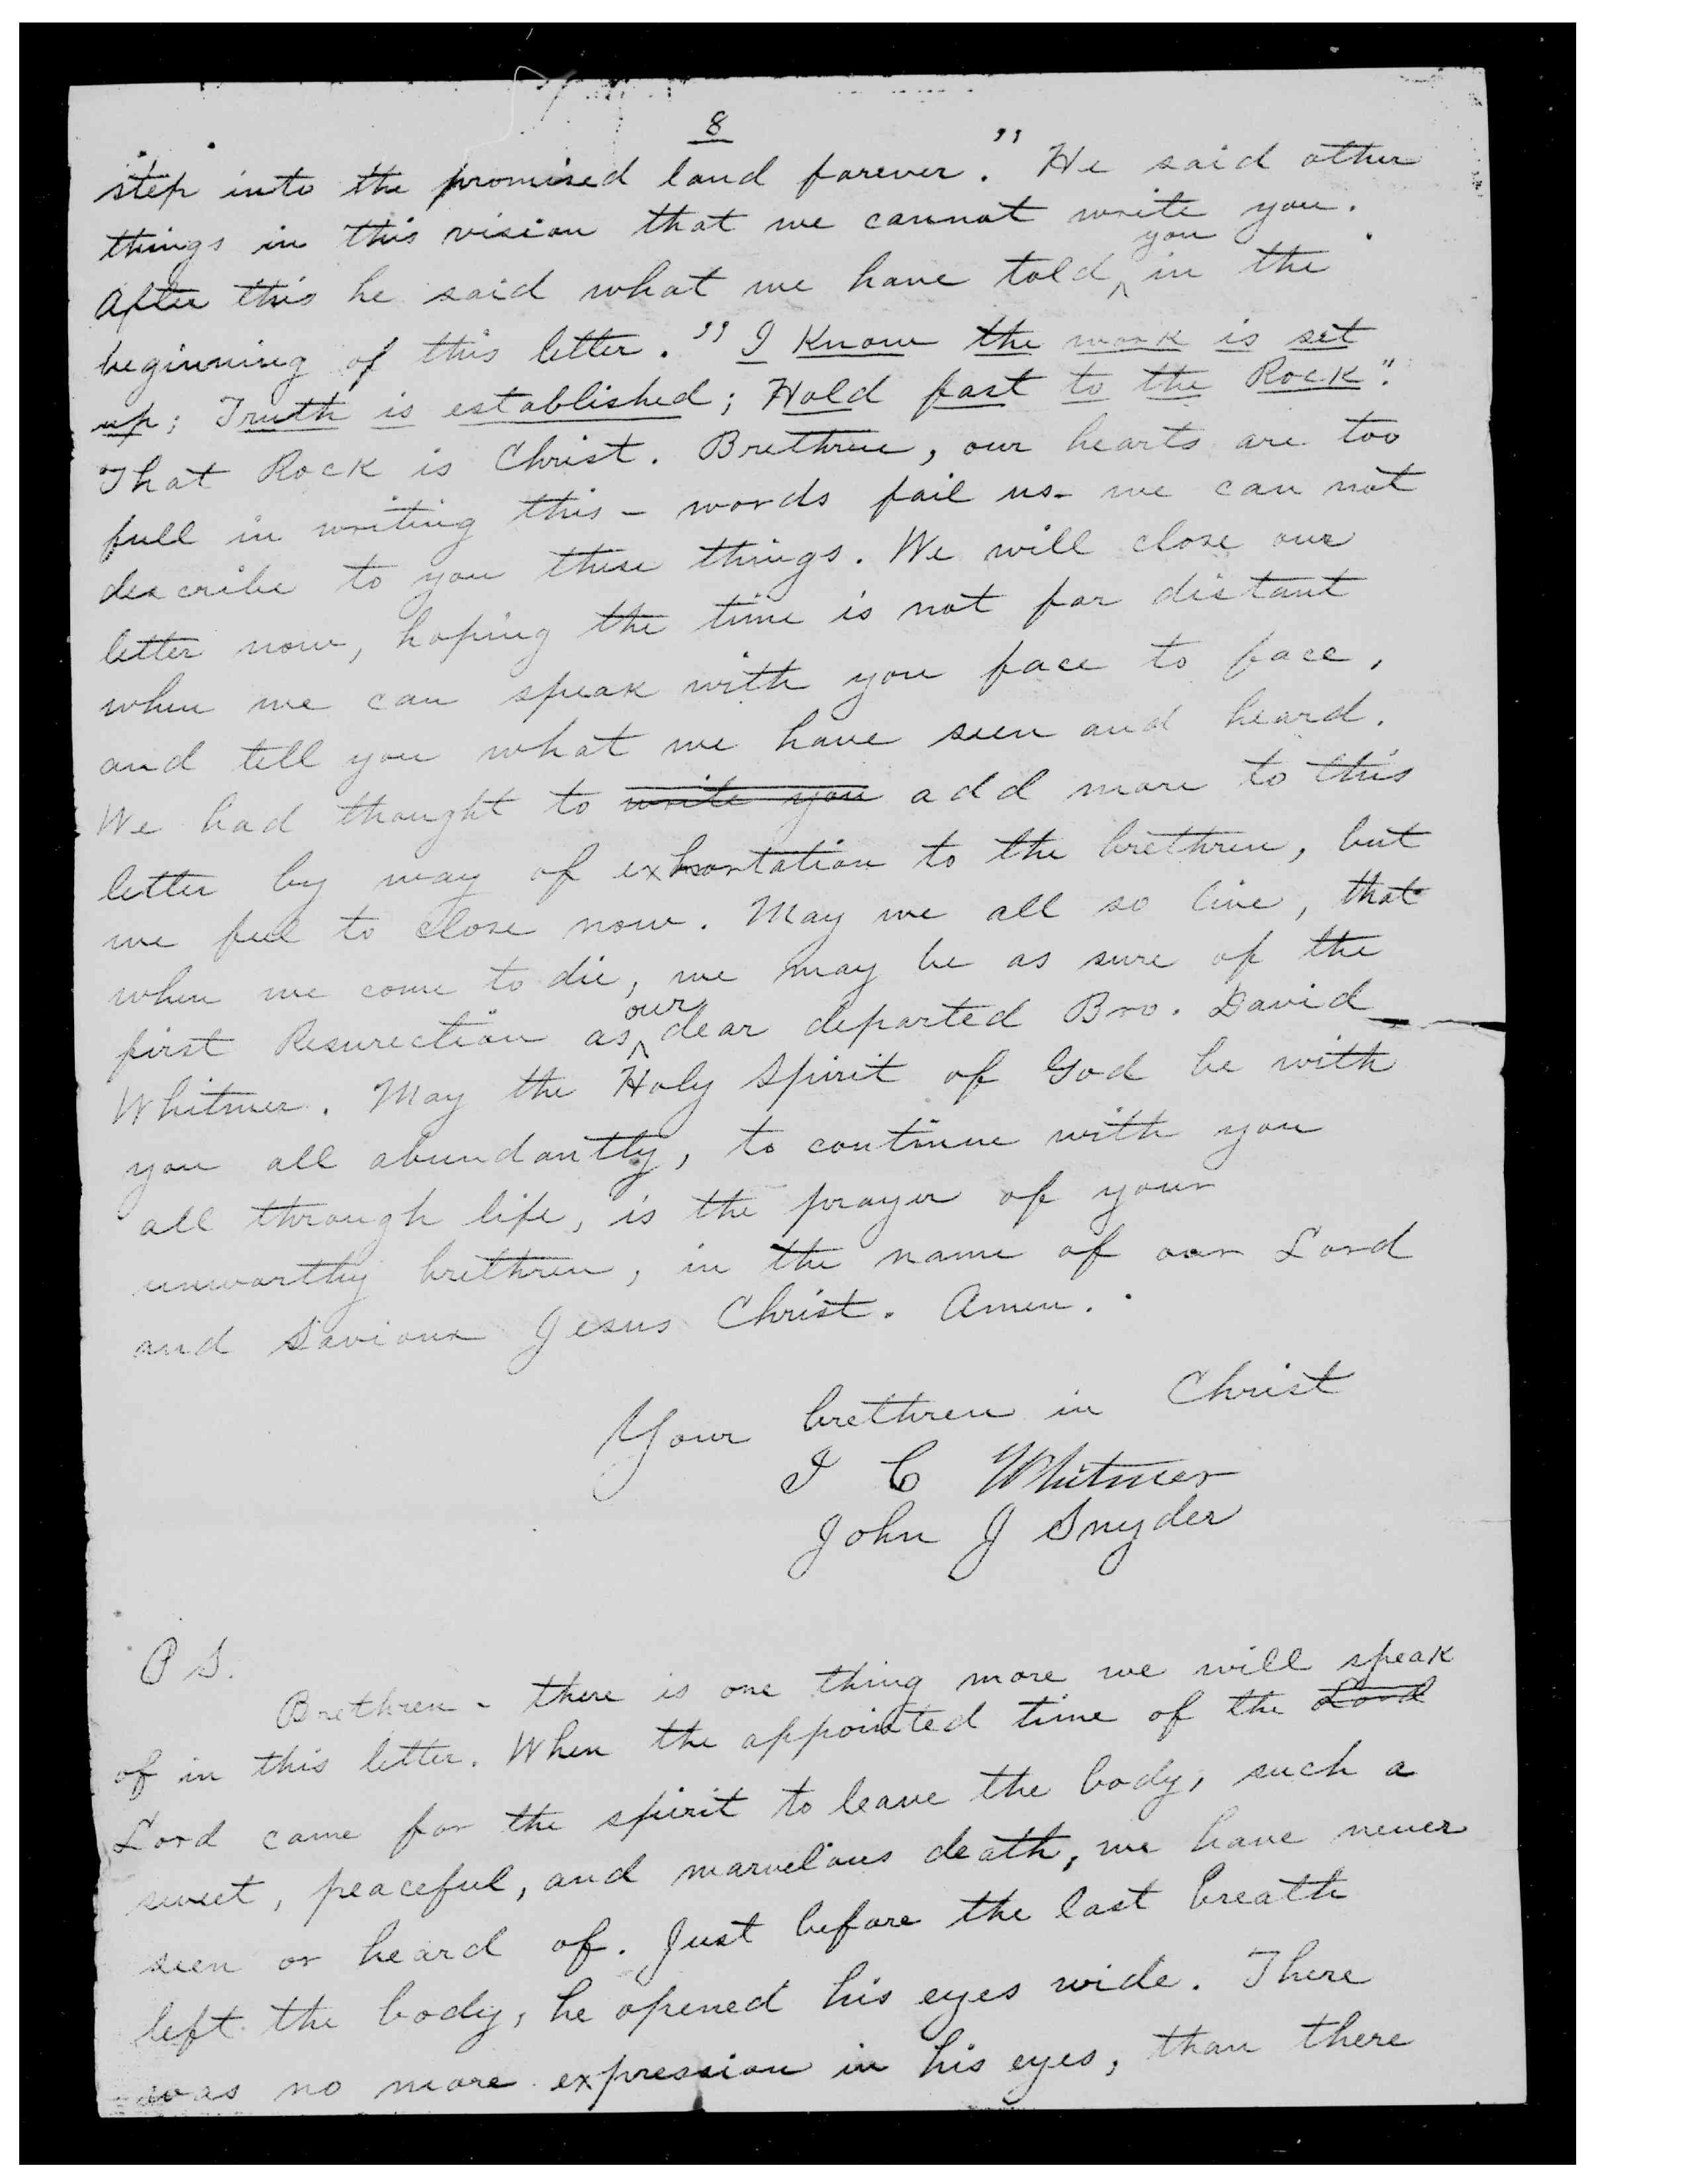 8
step into the promised land forever." He said other
things in this vision that we cannot write you.
After this he said what we have told you in the
beginning of this letter. "I Know the work is set
up; Truth is established; Hold fast to the Rock".
That Rock is Christ. Brethren, our hearts are too
full in writing this - words fail us - we can not
describe to you these things. We will close our
letter now, hoping the time is not far distant
when we can speak with you face to face,
and tell you what we have seen and heard.
We had thought to write you add more to this
letter by way of exhortation to the brethren, but
we feel to close now. May we all so live, that
when we come to die, we may be as sure of the
first Resurection as our dear departed Bro. David
Whitmer. May the Holy Spirit of God be with
you all abundantly, to continue with you
all through life, is the prayer of your
unworthy brethren, in the name of our Lord
and Saviour Jesus Christ. Amen.
Your brethren in Christ
J C Whitmer
John J Snyder
P S.
Brethren - there is one thing more we will speak
of in this letter. When the appointed time of the Lord
Lord came for the spirit to leave the body, such a
sweet, peaceful, and marvelous death, we have never
seen or heard of. Just before the last breath
left the body, he opened his eyes wide. There
was no more expression in his eyes, than there